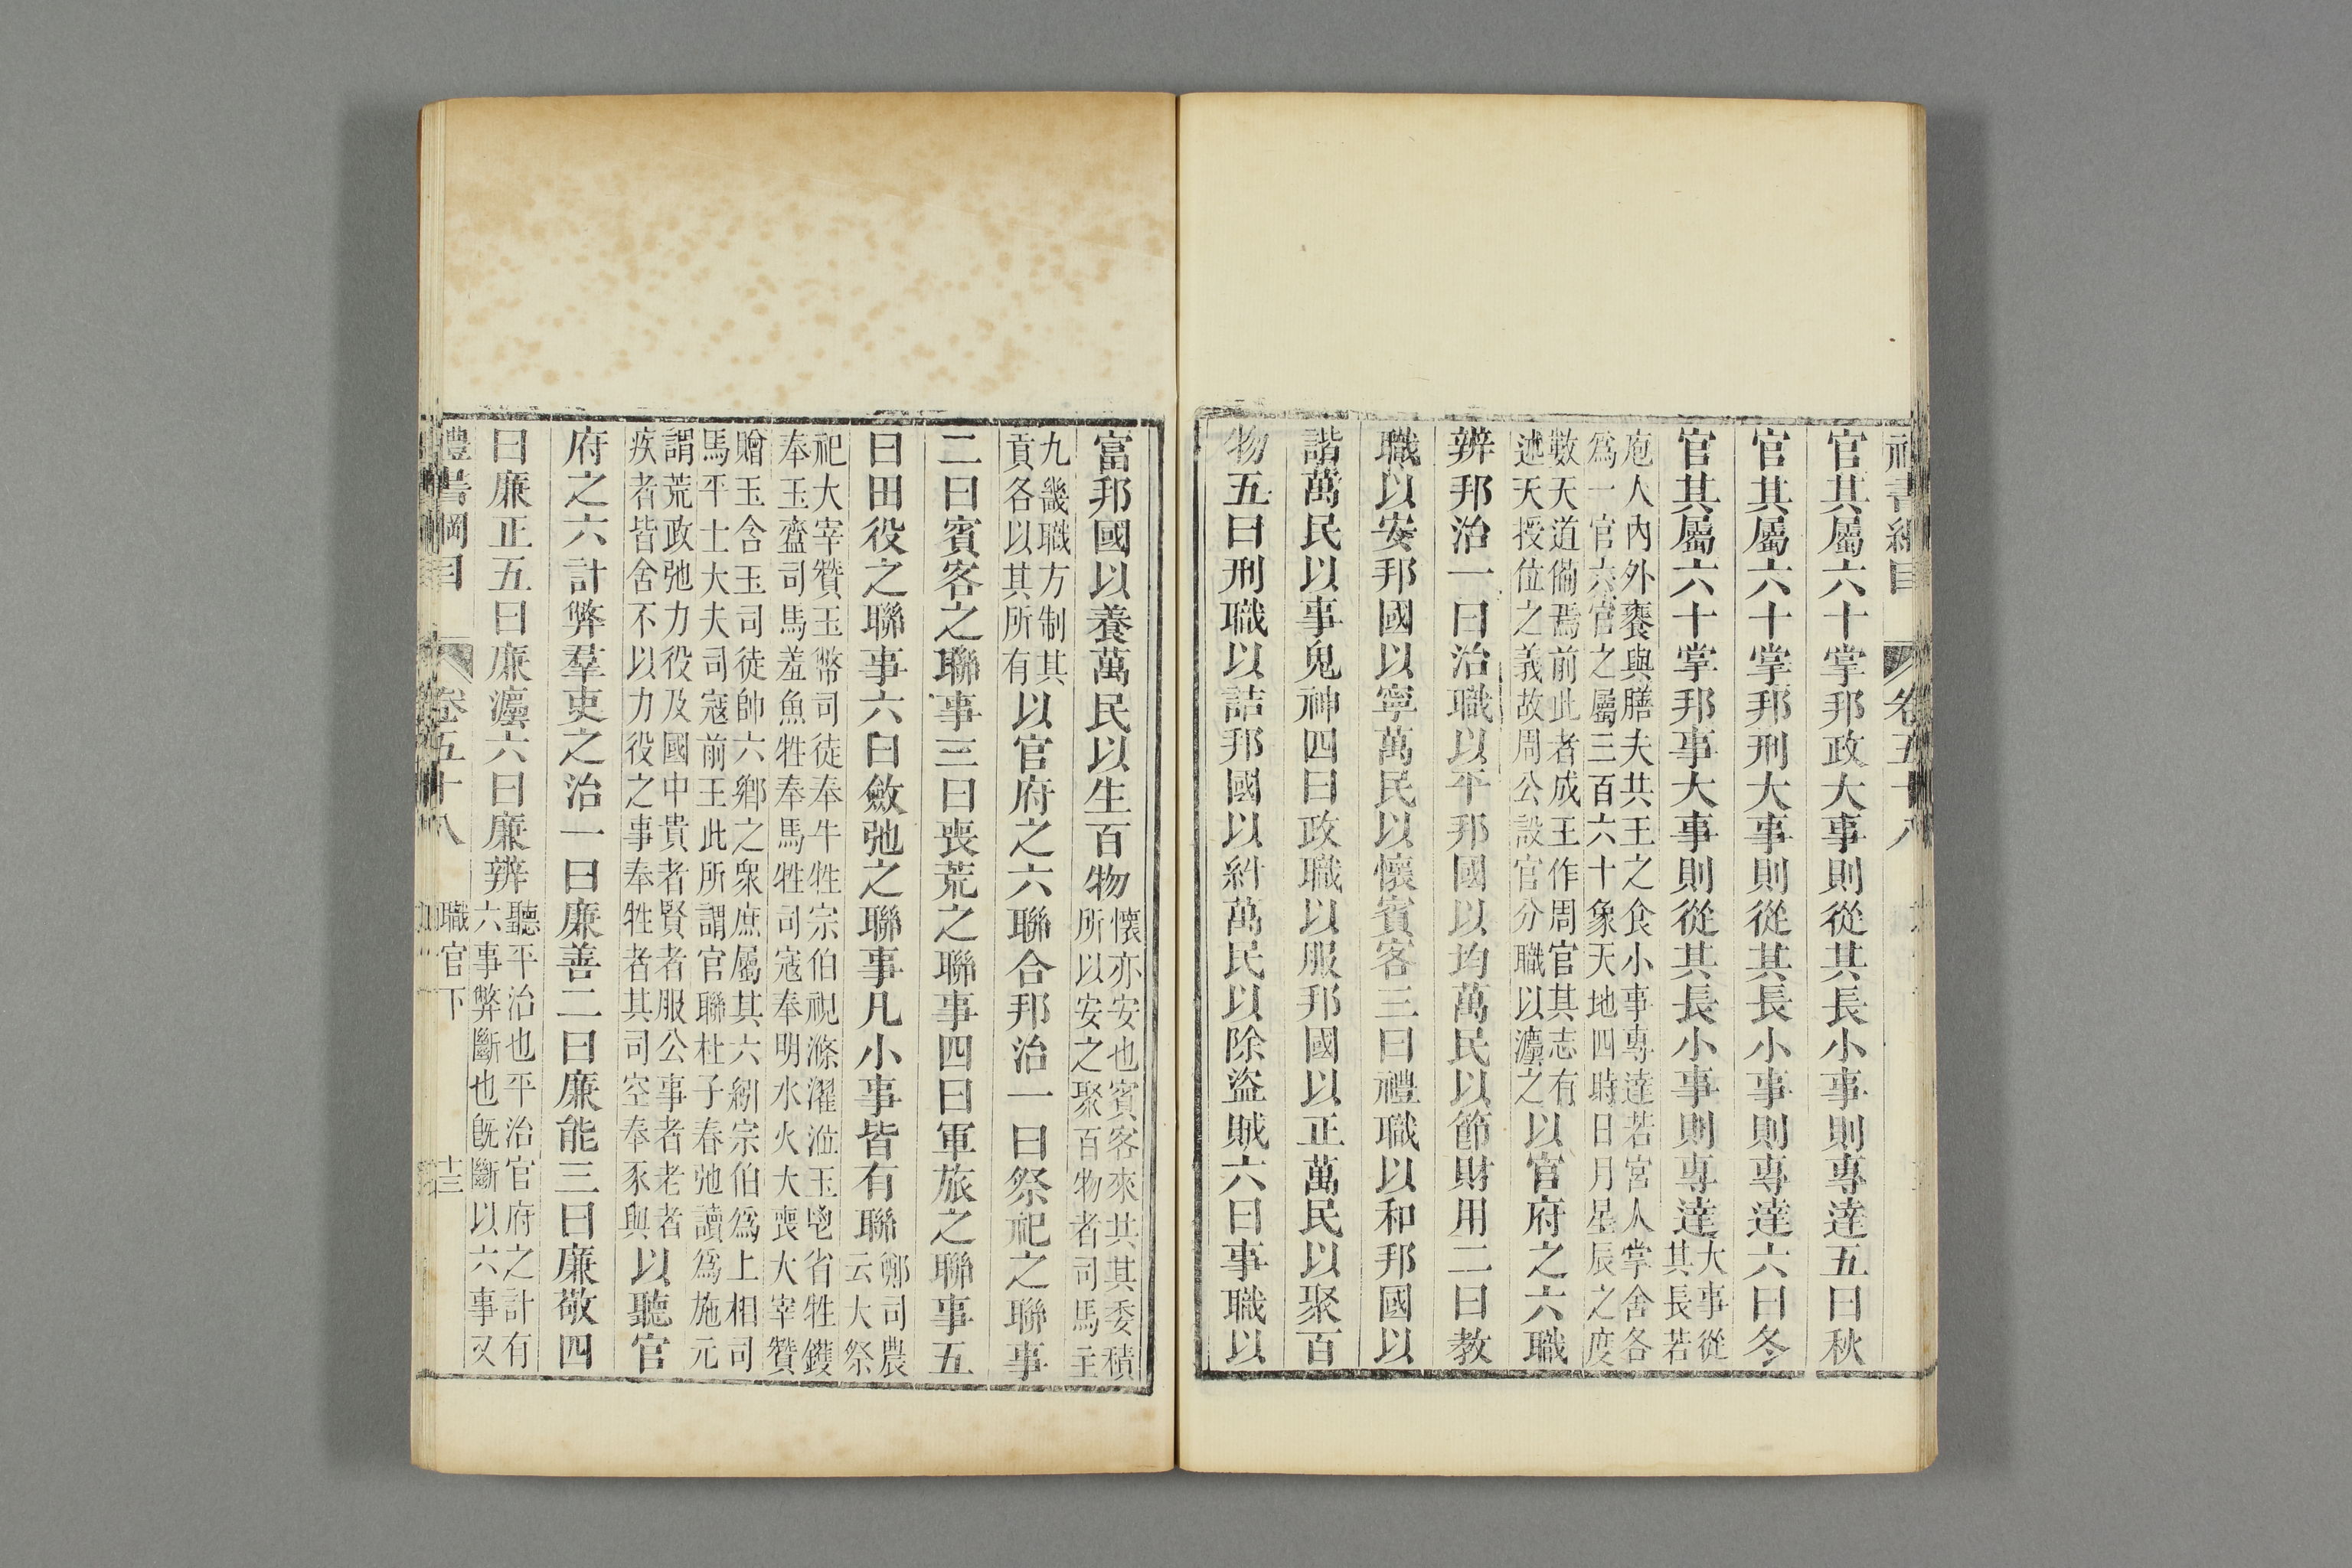 禮書綱目 卷五十八
官其屬六十掌邦政大事則從其長小事則專達五曰秋
官其屬六十掌邦刑大事則從其長小事則專達六曰冬
官其屬六十掌邦事大事則從其長小事則專達大事從其長若
庖人內外饔與膳夫共王之食小事專達若宮人掌舍各
爲一官六官之屬三百六十象天地四時日月星辰之度
數天道備焉前此者成王作周官其志有
述天授位之義故周公設官分職以灋之以官府之六職
辨邦治一曰治職以平邦國以均萬民以節財用二曰教
職以安邦國以寧萬民以懷賓客三曰禮職以和邦國以
諧萬民以事鬼神四曰政職以服邦國以正萬民以聚百
物五曰刑職以詰邦國以糾萬民以除盜賊六曰事職以
富邦國以養萬民以生百物懷亦安也賓客來共其委積
所以安之聚百物者司馬主
九畿職方制其
貢各以其所有以官府之六聯合邦治一曰祭祀之聯事
二曰賓客之聯事三曰喪荒之聯事四曰軍旅之聯事五
曰田役之聯事六曰斂弛之聯事凡小事皆有聯鄭司農
云大祭
祀大宰贊玉幣司徒奉牛牲宗伯視滌濯涖玉鬯省牲鑊
奉玉齍司馬羞魚牲奉馬牲司寇奉明水火大喪大宰贊
贈玉含玉司徒帥六鄉之衆庶屬其六紖宗伯爲上相司
馬平士大夫司寇前王此所謂官聯杜子春弛讀爲施元
謂荒政弛力役及國中貴者賢者服公事者老者
疾者皆舍不以力役之事奉牲者其司空奉豕與以聽官
府之六計弊羣吏之治一曰廉善二曰廉能三曰廉敬四
曰廉正五曰廉灋六曰廉辨聽平治也平治官府之計有
六事弊斷也既斷以六事又
禮書綱目 卷五十八 職官下 十三